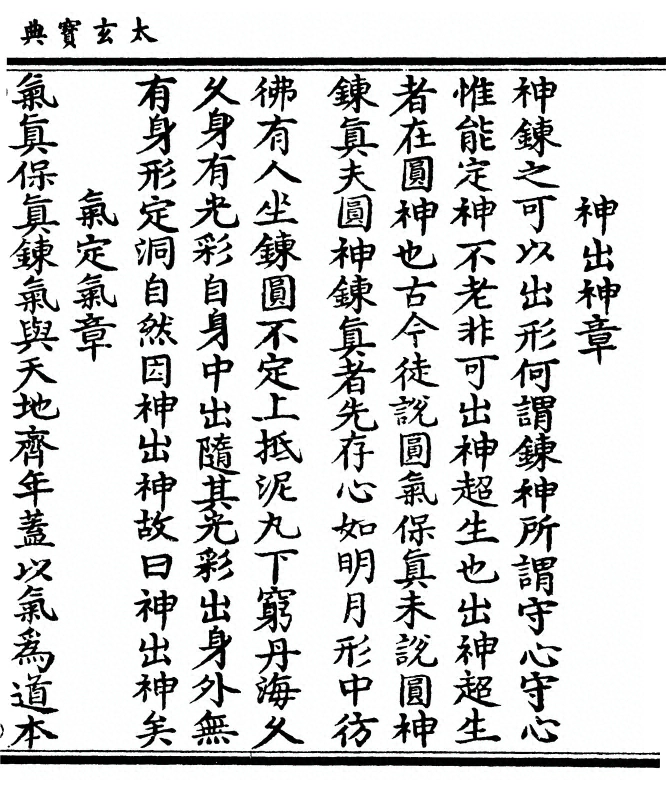 太玄寶典
神出神章
神鍊之可以出形何謂鍊神所謂守心守心
惟能定神不老非可出神超生也出神超生
者在圓神也古今徒說圓氣保眞未說圓神
鍊眞夫圓神鍊眞者先存心如明月形中彷
彿有人坐鍊圓不定上抵泥丸下窮丹海久
久身有光彩自身中出隨其光彩出身外無
有身形定洞自然因神出神故曰神出神矣
氣定氣章
氣眞保眞鍊氣與天地齊年蓋以氣爲道本